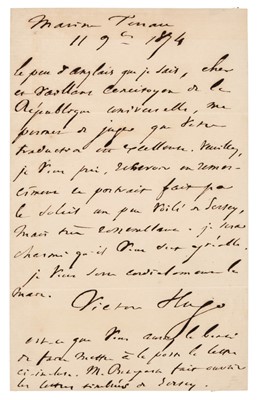 Marine Terrace
11 9bre 1854
le peu d'anglais que je sais, cher
et vaillant concitoyen de la
République universelle, me
permet de juger que votre
traduction est excellente. Veuillez,
je vous prie, recevoir en remer-
cîment ce portrait fait par
le soleil un peu voilé de Jersey,
mais très ressemblant. je serai
charmé qu'il vous soit agréable.
je vous serre cordialement la
main.
Victor Hugo
est-ce que vous auriez la bonté
de faire mettre à la poste la lettre
ci-incluse. M. fait ouvrir
les lettres timbrées de Jersey.